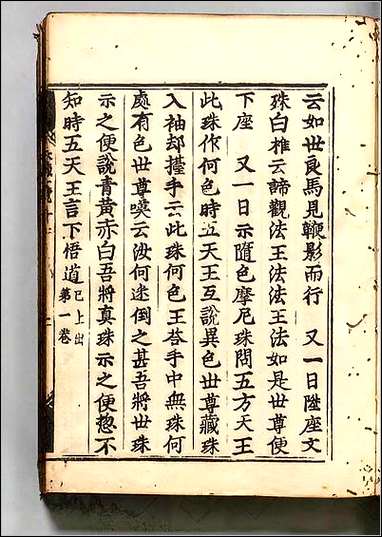 云如世良馬見鞭影而行　又一日陞座文
殊白椎云諦觀法王法法王法如是世尊便
下座　又一日示隨色摩尼珠問五方天王
此珠作何色時五天王互說異色世尊藏珠
入袖却擡手云此珠何色王荅手中無珠何
處有色世尊嘆云汝何迷倒之甚吾將世珠
示之便說青黃赤白吾將真珠示之便惣不
知時五天王言下悟道已上出第一卷